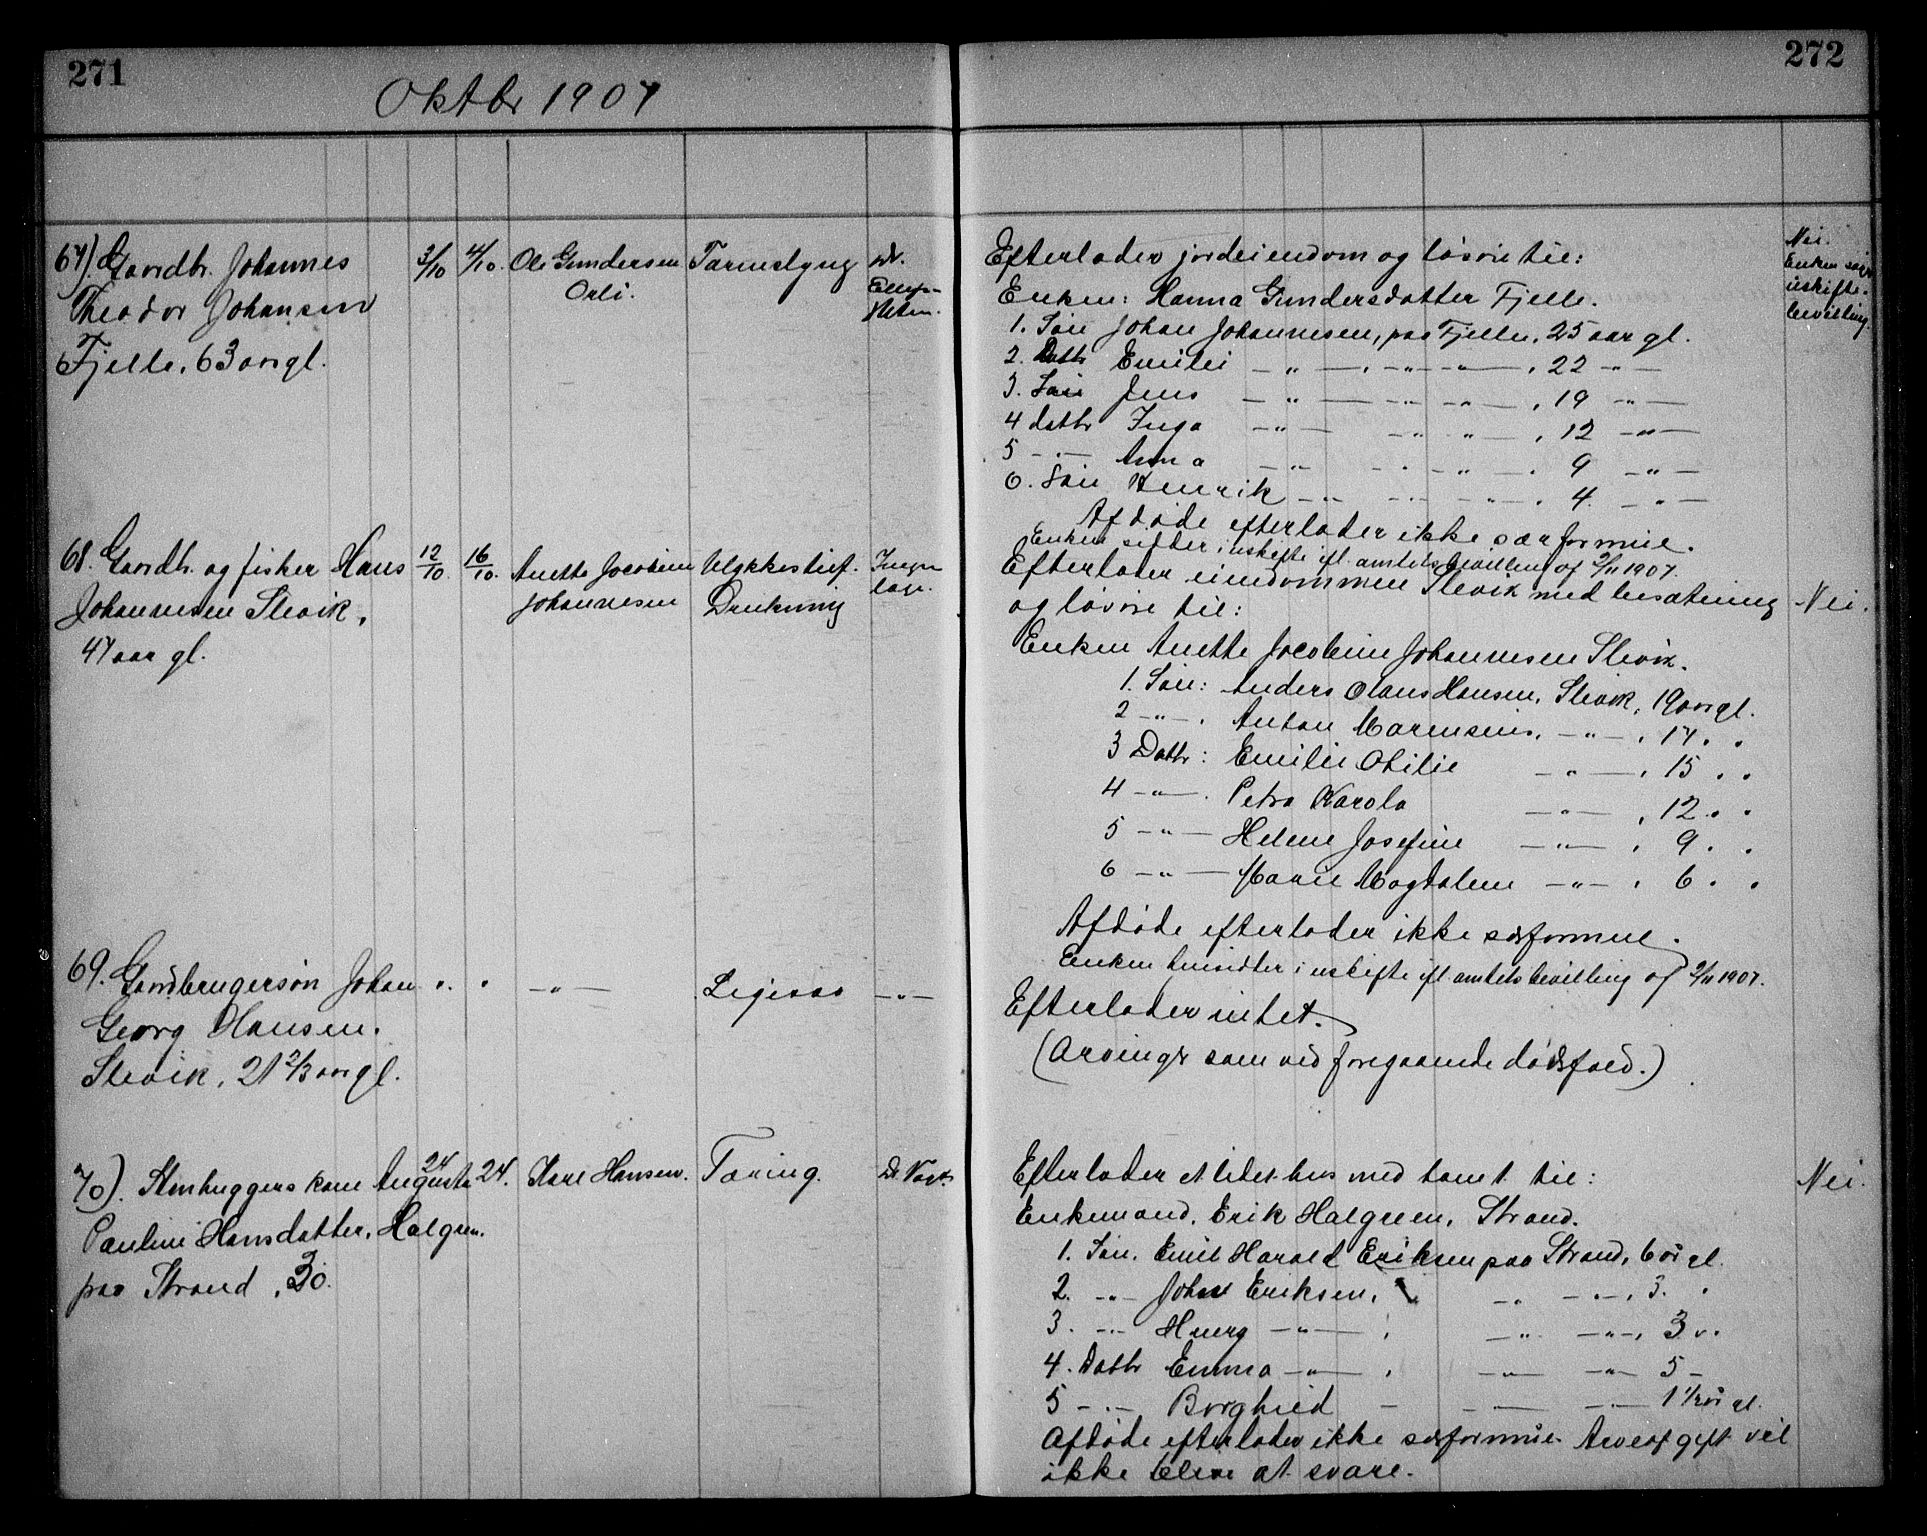 271
Oktbr 1907
67). Gaardbr. Johannes
Theodor Johansen
Fjelle, 63 aar gl.
3/10
4/10.
Ole Gundersen
Orli.
Tarmslyng
dr.
68. Gaardbr. og fisker Hans
Johannesen Slevik,
47 aar gl.
12/10.
16/10.
Anette Jocobine
Johannesen
Ulykkestilf.
Drukning
Ingen
læge.
69. Gaardbrugersøn Johan
Georg Hansen.
Slevik, 21 2/3 aar gl.
" "
— " —
Ligesaa
— " —
70). Stenhuggers kone Augusta
Pauline Hansdatter, Halgren.
paa Strand, 30.
24
24.
Karl Hansen.
Tæring.
Dr. Vogt
272
Efterlader jordeiendom og løsøre til:
Enken: Hanna Gundersdatter Fjelle.
1. Søn Johan Johannesen, paa Fjelle, 25 aar gl.
2. Datter Emilie — " — , — " — " — , 22 — " —
3. Søn Jens — " — — " — " — , 19 — " —
4 datter Inga — " — — " — " — , 12 — " —
5 — " — Anna — " — — " — " — , 9 — " —
6. Søn Henrik — " — — " — " — , 4. — " —
Afdøde efterlader ikke særformue.
Enken sidder i uskifte ifl. amtets bevilling af 9/11 1907.
Nei.
Enken søger
uskifte-
bevilling.
Efterlader eiendommen Slevik med besætning
og løsøre til:
Nei.
Enken Anette Jocobine Johannesen Slevik.
1. Søn: Anders Olaus Hansen, Slevik, 19 aar gl.
2 — " — , Anton Marensius, — " — , 17. "
3 Datter: Emilie Otilie — " — , 15 . "
4 — " — . Petra Karola — " — , 12 . "
5 — " — Helene Josefine — " — , 9 . "
6 — " — Marie Magdalene — " — , 6 . "
Afdøde efterlader ikke særformue.
Enken hensidder i uskifte ifl amtets bevilling af 9/11 1907.
Efterlader intet.
(Arvinger som ved foregaaende dødsfald.)
Efterlader et lidet hus med tomt til:
Nei.
Enkemand, Erik Halgreen, Strand.
1. Søn. Emil Harald Eriksen paa Strand, 6 år gl.
2. — " — Johan Eriksen, — " — — " — , 3. "
3. — " — — " — , — " — — " — , 3 "
4. Datter Emma — " — , — " — — " — 5 —
5 — " — Borghild — — " — — " — 1 1/2 år gl.
Afdøde efterlader ikke særformue. Arveafgift vil
ikke blive at svare.